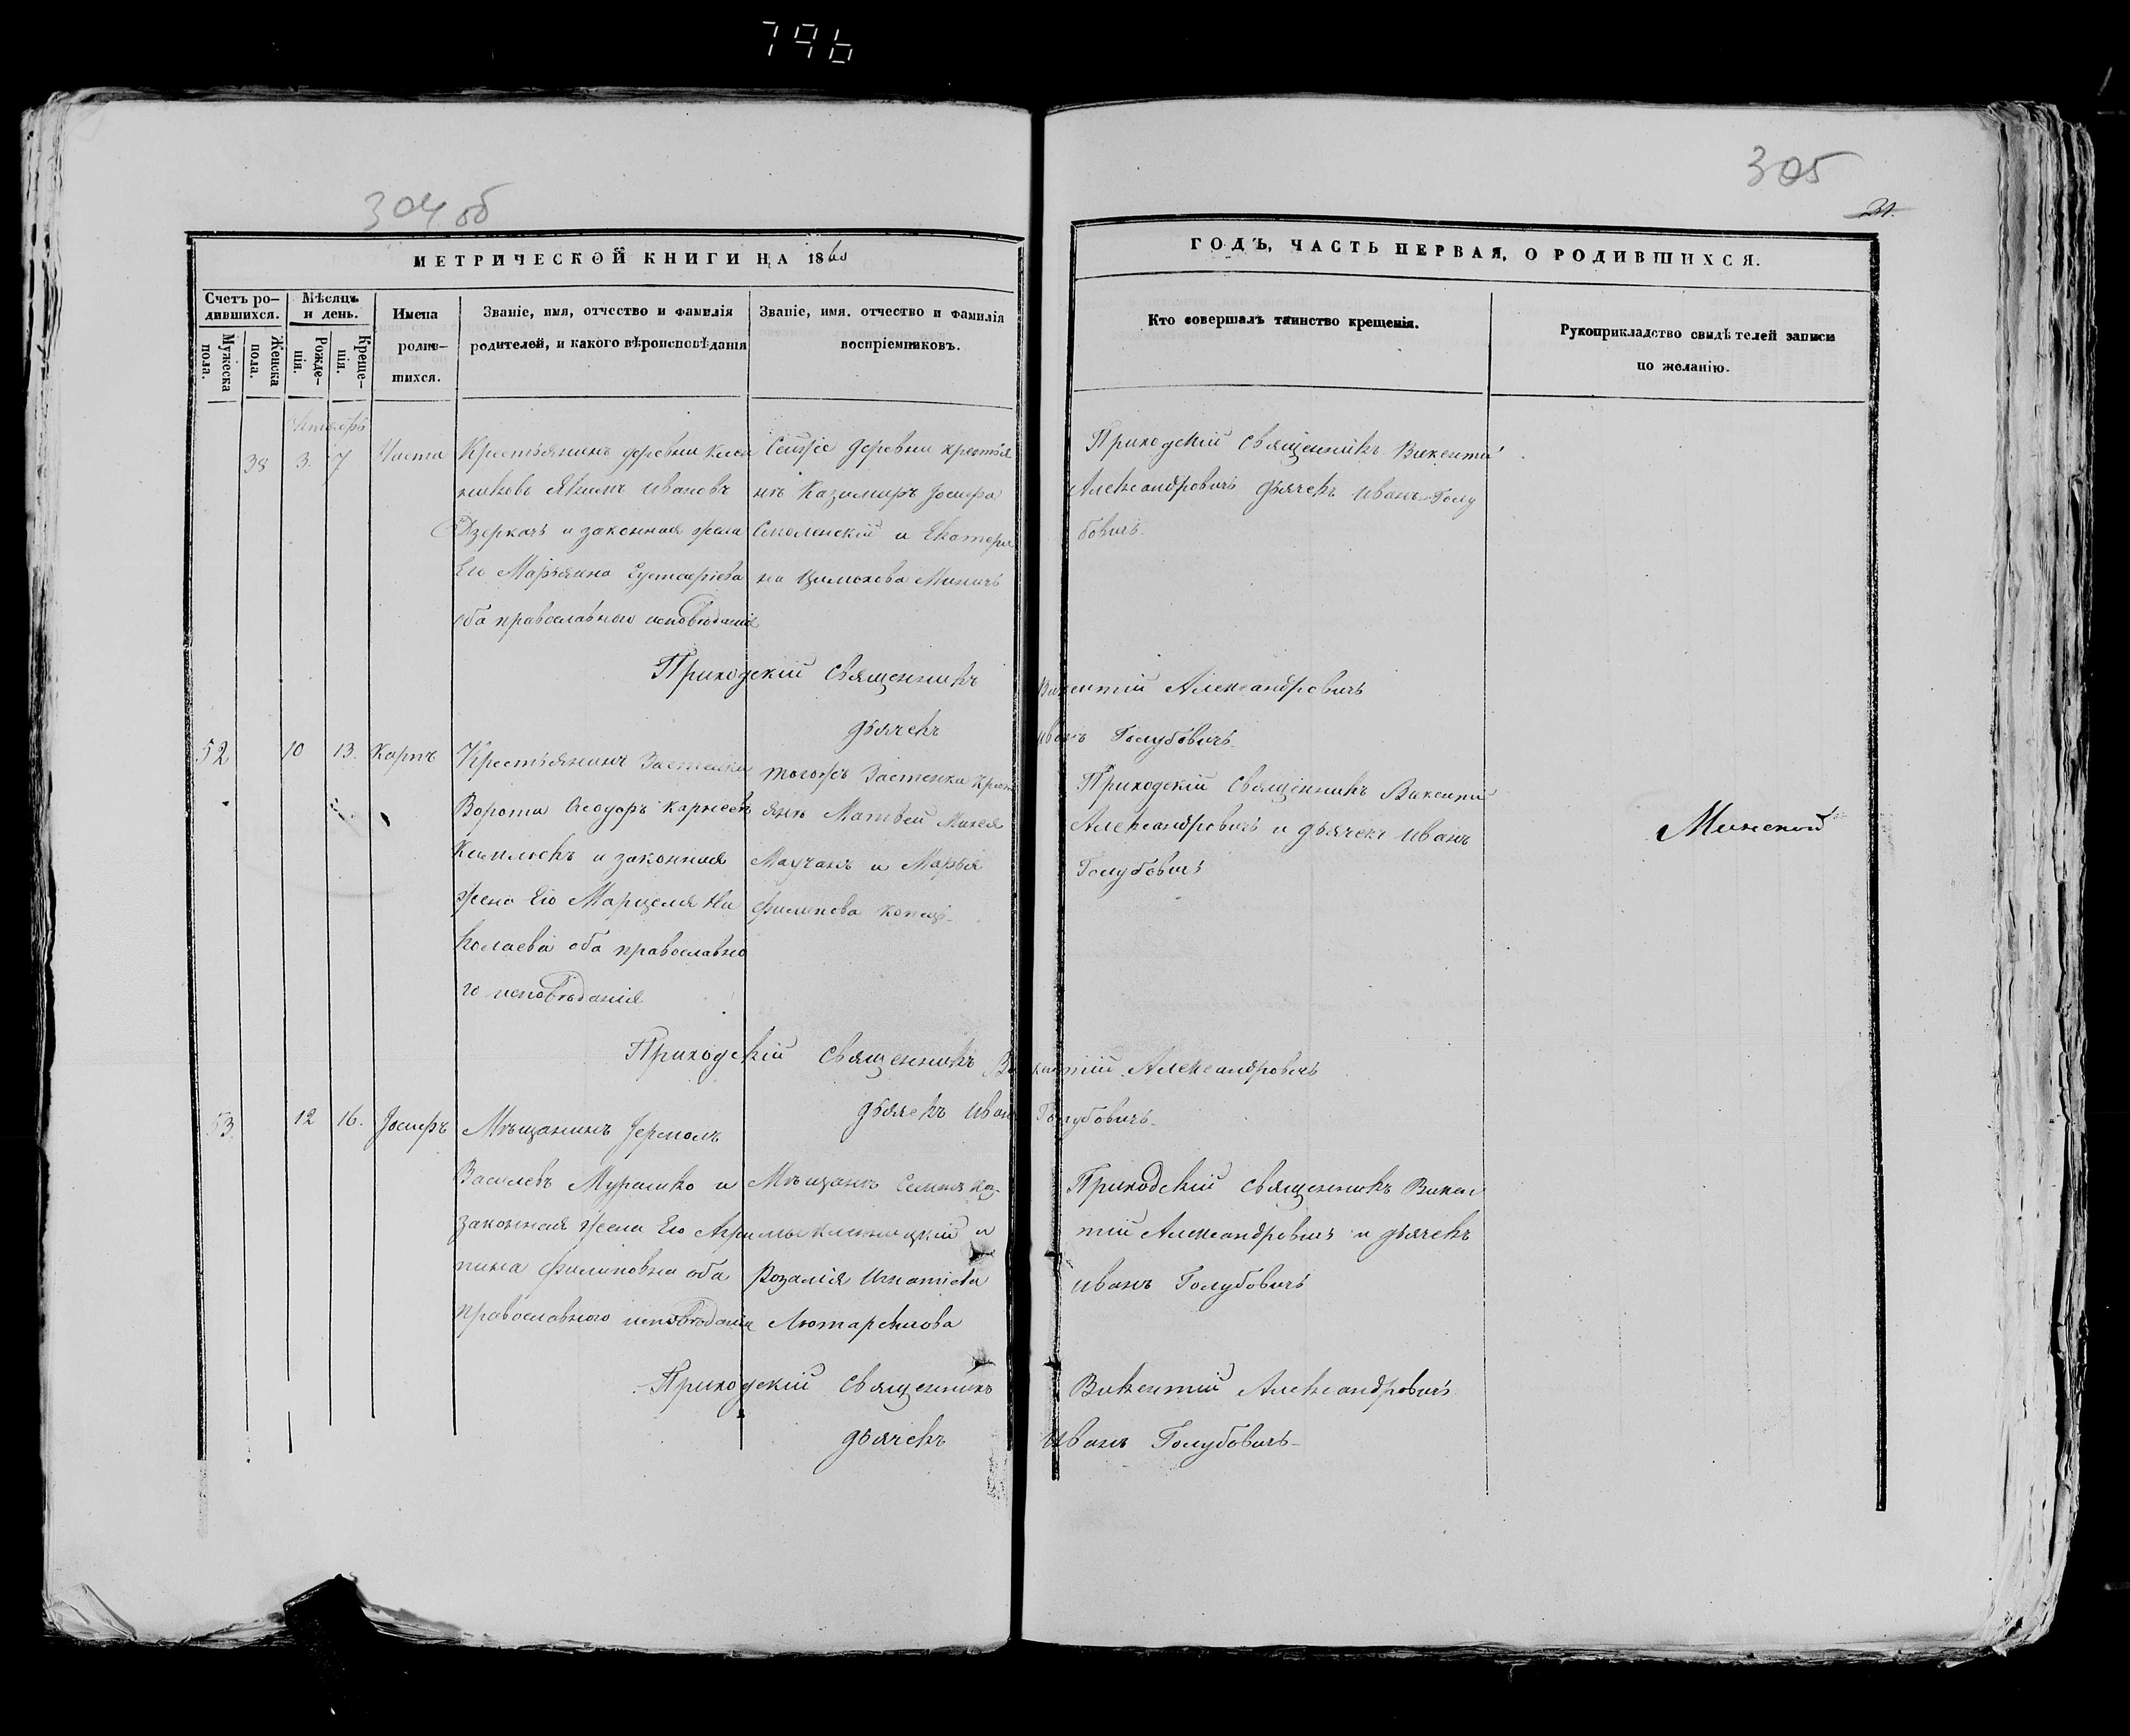 796
304 об
305
31.
МЕТРИЧЕСКОЙ КНИГИ НА 1860
ГОДЪ, ЧАСТЬ ПЕРВАЯ, О РОДИВШИХСЯ.
Счетъ ро-
дившихся.
Мужеска
пола.
Женска
пола.
Мѣсяцъ
и день.
Рожде-
нія.
Креще-
нія.
Имена
родив-
шихся.
Званіе, имя, отчество и фамилія
родителей, и какого вѣроисповѣданія
Званіе, имя, отчество и фамилія
воспріемниковъ.
Кто совершалъ таинство крещенія.
Рукоприкладство свидѣтелей записи
по желанію.
38 3. 7
Крестьянинъ деревни
Якимъ Ивановъ
Дзеркачъ и законная жена
Его Марьянна
оба православнаго исповѣданія
деревни крестья
нъ Казимиръ Іосифа
Смоленскій и Екатери
на Миничъ
Приходскій Священникъ Викентій
Александровичъ дьячекъ Иванъ Голу
бовичъ.
Приходскій Священникъ Викентій Александровичъ
дьячекъ Иванъ Голубовичъ
52 10 13. Карпъ
Крестьянинъ Застенка
Ворота Ѳеодоръ
и законная
жена Его Марцеля Ни
колаева оба православна
го исповѣданія
тогожъ Застенка Крест
янъ Матвей
и Марья
Приходскій Священникъ Викентій
Александровичъ и дьячекъ Иванъ
Голубовичъ
Минской
Приходскій Священникъ Викентій Александровичъ
дьячекъ Иванъ Голубовичъ.
53. 12 16. Іосифъ
Мѣщанинъ
Василевъ Мурашко и
законная жена Его Агри
пина Филиповна оба
православнаго исповѣданія
Мѣщанъ
и
Розалія Игнатіева
Приходскій Священникъ Викен
тій Александровичъ и дьячекъ
Иванъ Голубовичъ
Приходскій Священникъ Викентій Александровичъ
дьячекъ Иванъ Голубовичъ